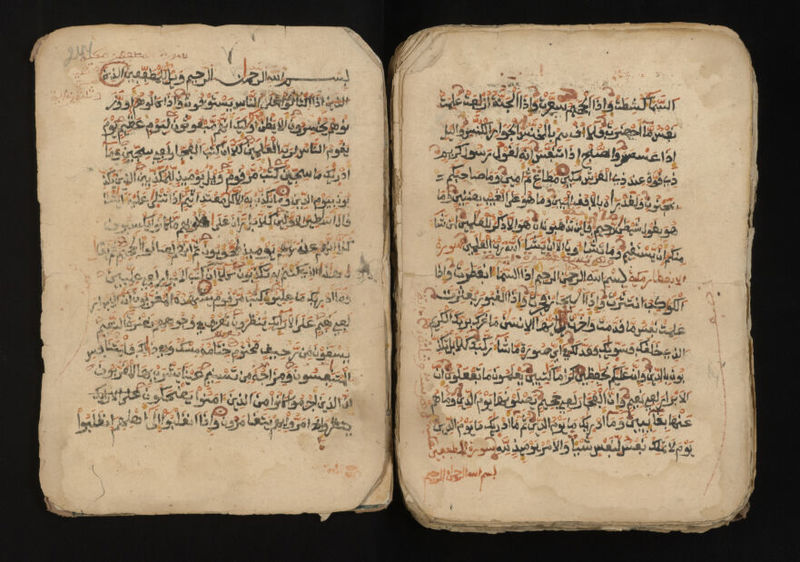 السما كشطت واذا الجحيم سعرت واذا الجنة ازلفت علمت
نفس ما احضرت فلا اقسم بالخنس الجوار الكنس واليل
اذا عسعس والصبح اذا تنفس انه لقول رسول كريم
ذي قوة عند ذي العرش مكين مطاع ثم امين وما صاحبكم
بمجنون ولقد راه بالافق المبين وما هو على الغيب بضنين وما
هو بقول شيطن رجيم فاين تذهبون ان هو الا ذكر للعلمين لمن شا
منكم ان يستقيم وما تشاون الا ان يشا الله رب العلمين سورة
الانفطار مكية بسم الله الرحمن الرحيم اذا السما انفطرت واذا
الكوكب انتثرت واذا البحار فجرت واذا القبور بعثرت
علمت نفس ما قدمت واخرت يايها الانسن ما غرك بربك الكريم
الذي خلقك فسويك فعدلك في اي صورة ما شا ركبك كلا بل تكذ
بون بالدين وان عليكم لحفظين كراما كتبين يعلمون ما تفعلون ان
الابرار لفي نعيم وان الفجار لفي جحيم يصلونها يوم الدين وما هم
عنها بغايبين وما ادريك ما يوم الدين ثم ما ادريك ما يوم الدين
يوم لا تملك نفس لنفس شيا والامر يوميذ لله سورة المطففين
بسم الله الرحمن الرحيم
بسم الله الرحمن الرحيم ويل للمطففين الذين
الذين اذا اكتالوا على الناس يستوفون واذا كالوهم او وز
نوهم يخسرون الا يظن اوليك انهم مبعوثون ليوم عظيم يوم
يقوم الناس لرب العلمين كلا ان كتب الفجار لفي سجين وما
ادريك ما سجين كتب مرقوم ويل يوميذ للمكذبين الذين يكذ
بون بيوم الدين وما يكذب به الا كل معتد اثيم اذا تتلى عليه ايتنا
قال اسطير الاولين كلا بل ران على قلوبهم ما كانوا يكسبون
كلا انهم عن ربهم يوميذ لمحجوبون ثم انهم لصالوا الجحيم ثم يقا
ل هذا الذي كنتم به تكذبون كلا ان كتب الابرار لفي عليين
وما ادريك ما عليون كتب مرقوم يشهده المقربون ان الابرار
لفي نعيم على الارايك ينظرون تعرف في وجوههم نضرة النعيم
يسقون من رحيق مختوم ختامه مسك وفي ذلك فليتنافس
المتنفسون ومزاجه من تسنيم عينا يشرب بها المقربون
ان الذين اجرموا كانوا من الذين امنوا يضحكون
واذا مروا بهم يتغامزون واذا انقلبوا الى اهلهم انقلبوا